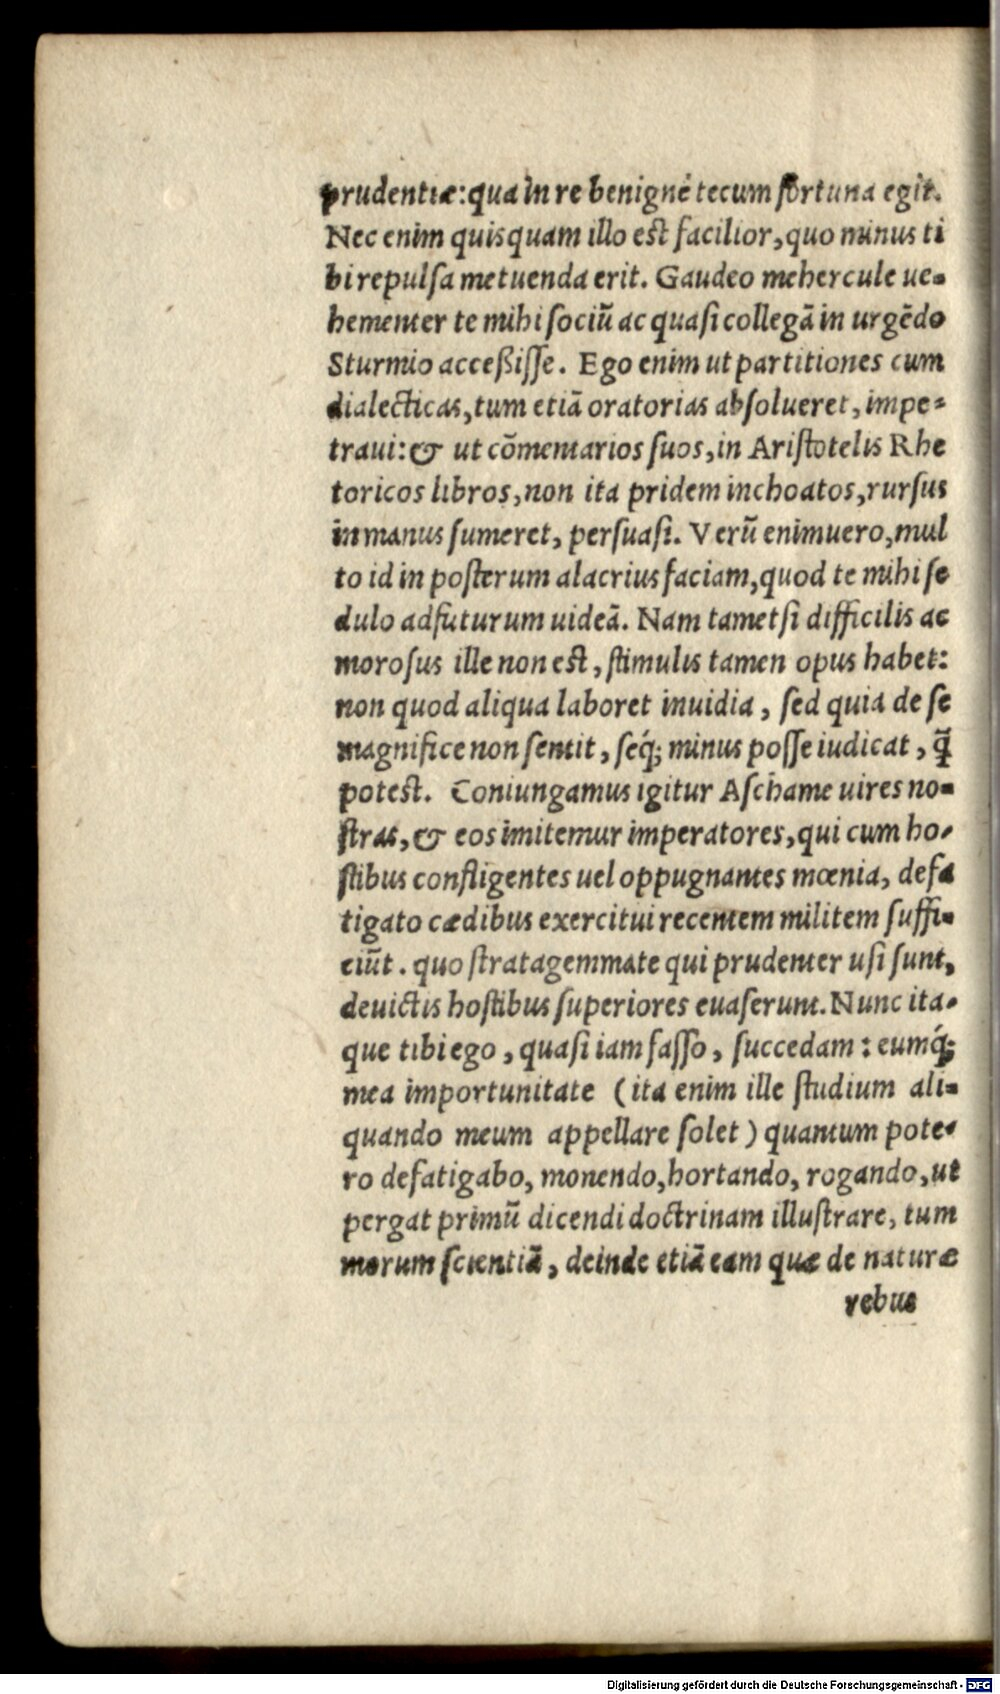 prudentiæ: qua in re benignè tecum fortuna egit.
Nec enim quisquam illo est facilior, quo minus ti
bi repulsa metuenda erit. Gaudeo mehercule ue-
hementer te mihi sociũ ac quasi collegã in urgẽdo
Sturmio acceßisse. Ego enim ut partitiones cum
dialecticas, tum etiã oratorias absolueret, impe-
traui: & ut cõmentarios suos, in Aristotelis Rhe
toricos libros, non ita pridem inchoatos, rursus
in manus sumeret, persuasi. Verũ enimuero, mul
to id in posterum alacrius faciam, quod te mihi se
dulo adfuturum uideã. Nam tametsi difficilis ac
morosus ille non est, stimulis tamen opus habet:
non quod aliqua laboret inuidia, sed quia de se
magnifice non sentit, seq́; minus posse iudicat, q̃
potest. Coniungamus igitur Aschame uires no-
stras, & eos imitemur imperatores, qui cum ho-
stibus confligentes uel oppugnantes mœnia, defa
tigato cædibus exercitui recentem militem suffi-
ciũt. quo stratagemmate qui prudenter usi sunt,
deuictis hostibus superiores euaserunt. Nunc ita-
que tibi ego, quasi iam fasso, succedam: eumq́;
mea importunitate (ita enim ille studium ali-
quando meum appellare solet) quantum pote-
ro defatigabo, monendo, hortando, rogando, ut
pergat primũ dicendi doctrinam illustrare, tum
morum scientiã, deinde etiã eam quæ de naturæ
rebus
Digitalisierung gefördert durch die Deutsche Forschungsgemeinschaft - DFG